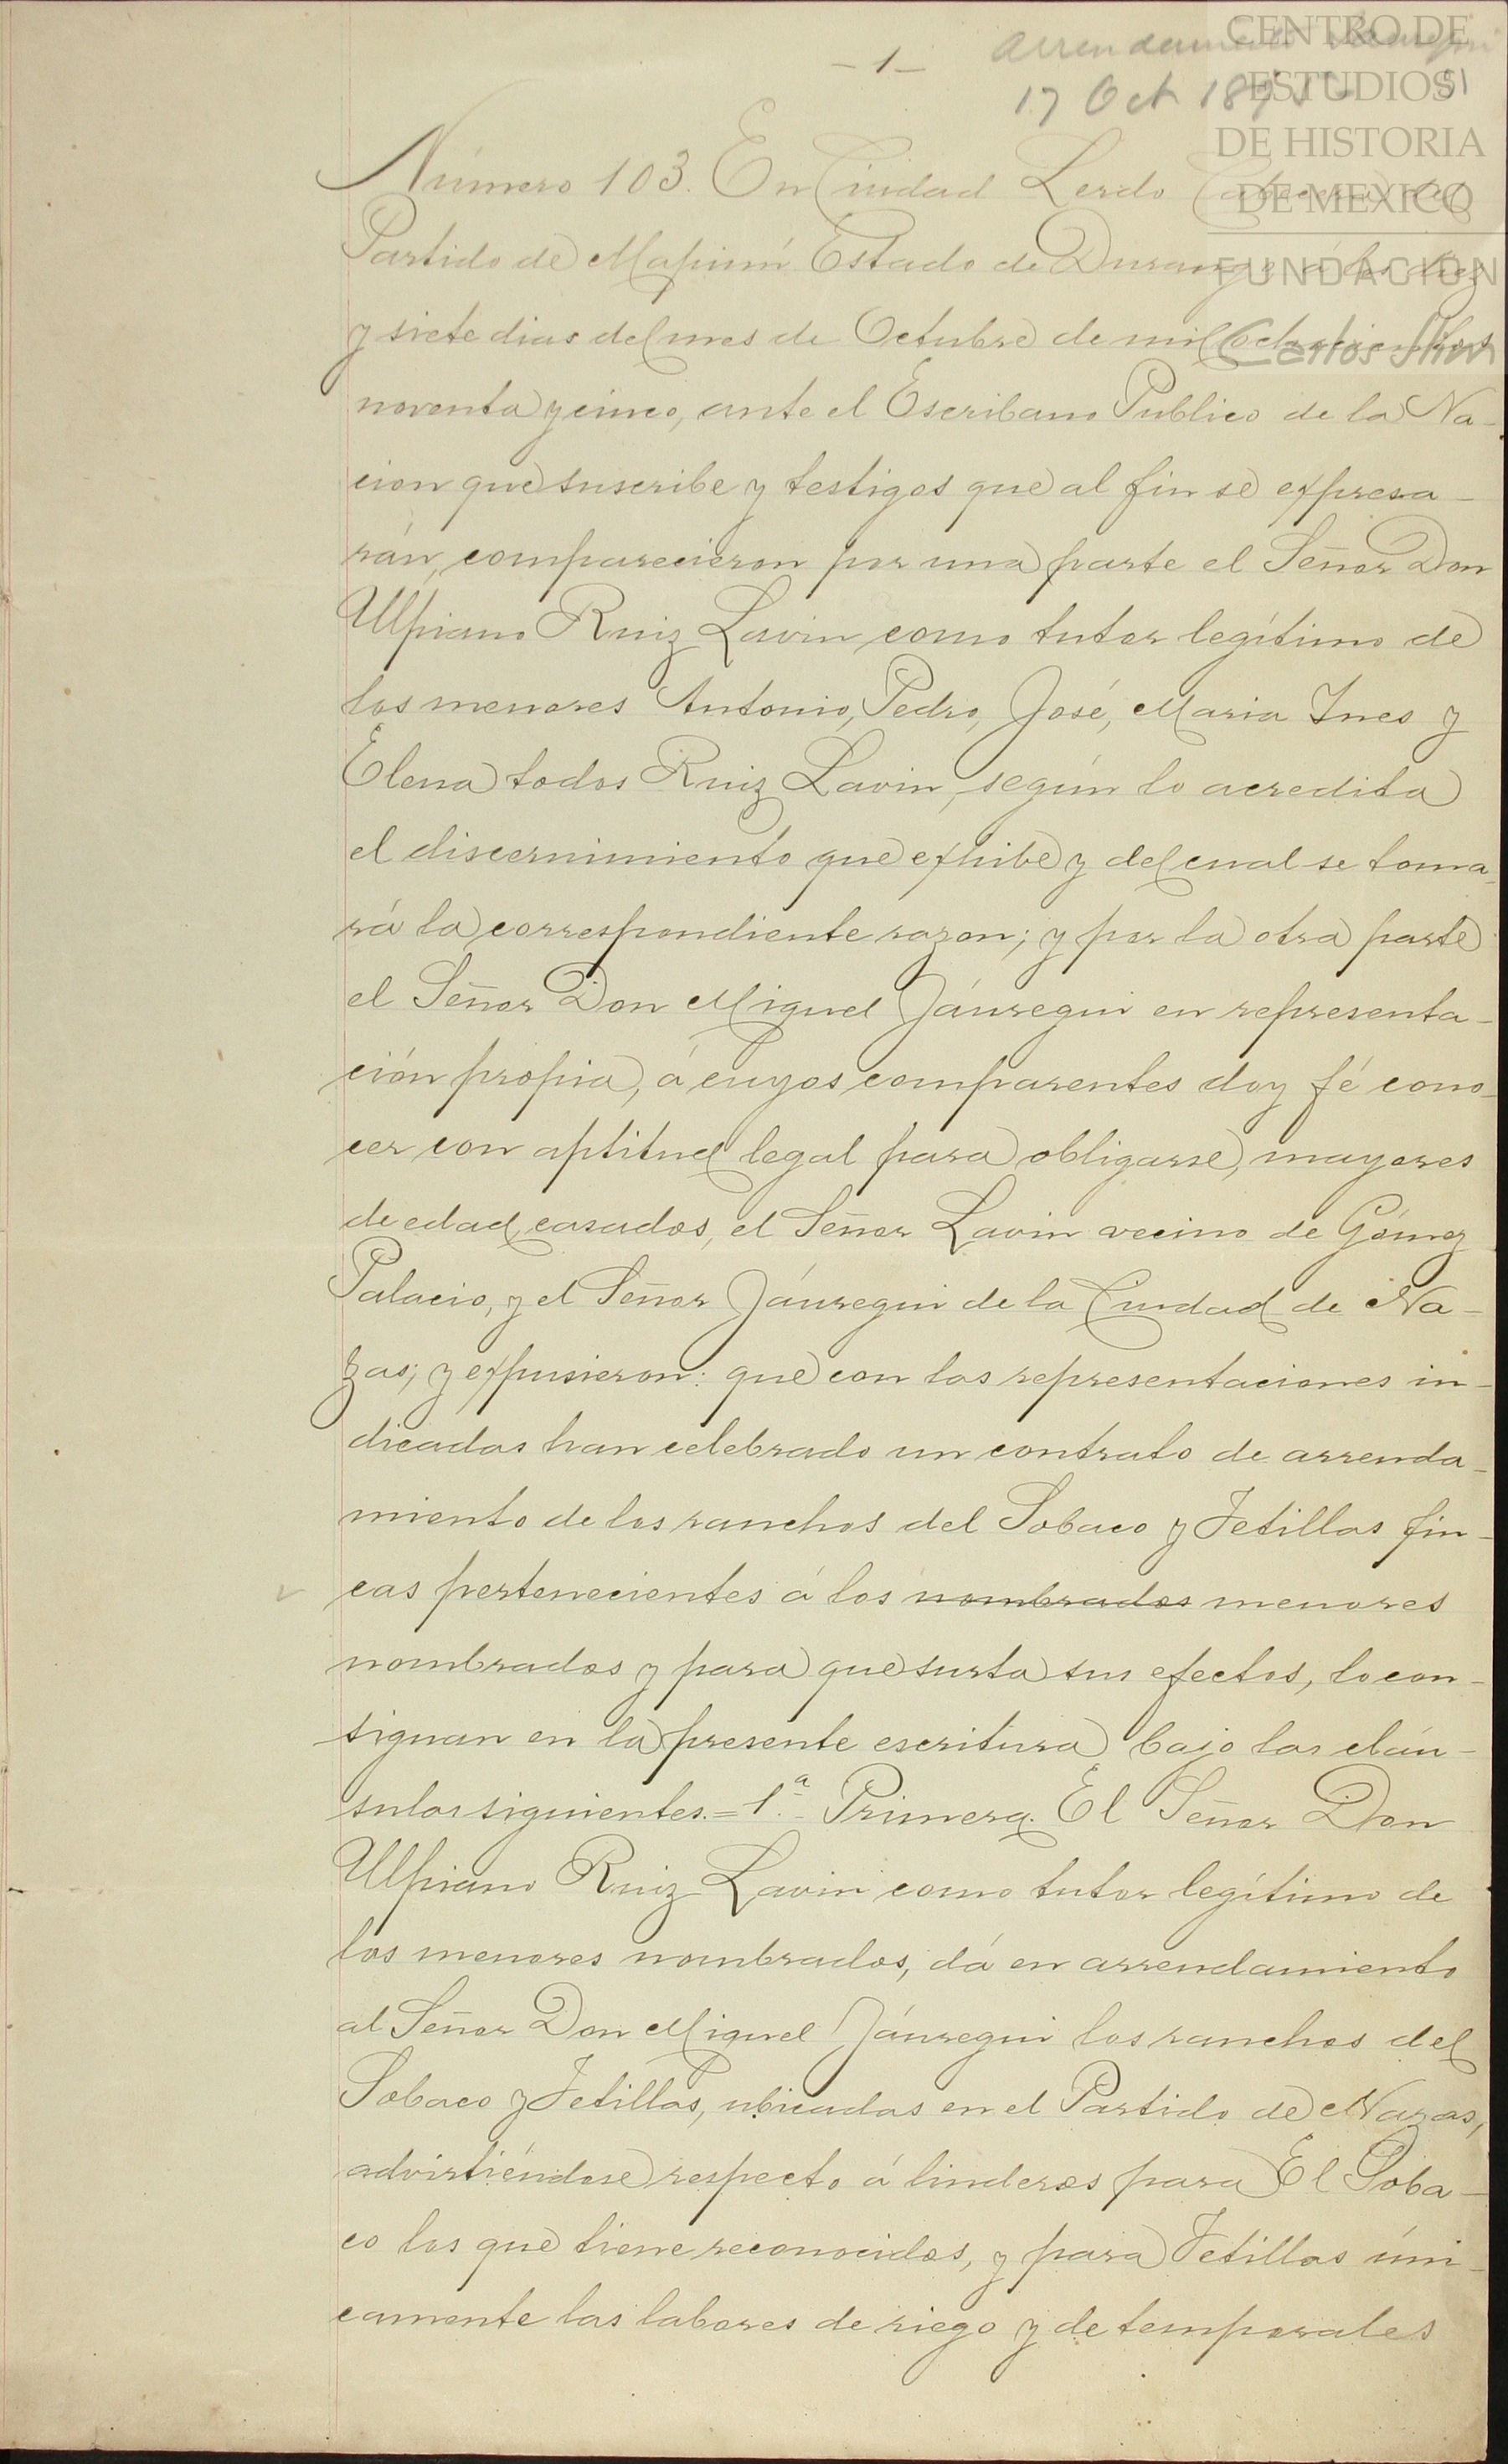 -1-
Arrendamiento
17 Oct 189
51
CENTRO DE
ESTUDIOS
DE HISTORIA
DE MEXICO
FUNDACION
Carlos Slim
Número 103. En Ciudad Lerdo Cabecera del
Partido de Mapimí Estado de Durango á los diez
y siete dias del mes de Octubre de mil ochocientos
noventa y cinco, ante el Escribano Publico de la Na-
cion que suscribe y testigos que al fin se expresa-
rán, comparecieron por una parte el Señor Don
Ulpiano Ruiz Lavin como tutor legítimo de
los menores Antonio, Pedro, José, Maria Ines y
Elena todos Ruiz Lavin, según lo acredita
el discernimiento que exhibe y del cual se toma-
rá la correspondiente razon; y por la otra parte
el Señor Don Miguel Jáuregui en representa-
ción propia, á cuyos comparentes doy fé cono-
cer con aptitud legal para obligarse, mayores
de edad, casados, el Señor Lavin vecino de Gómez
Palacio, y el Señor Jáuregui de la Ciudad de Na-
zas; y expusieron: que con las representaciones in-
dicadas han celebrado un contrato de arrenda-
miento de los ranchos del Sobaco y Tetillas fin-
cas pertenecientes á los nombrados menores
nombrados y para que surta sus efectos, lo con-
signan en la presente escritura bajo las cláu-
sulas siguientes.=1.ª Primera. El Señor Don
Ulpiano Ruiz Lavin como tutor legítimo de
los menores nombrados, dá en arrendamiento
al Señor Don Miguel Jáuregui los ranchos del
Sobaco y Tetillas, ubicadas en el Partido de Nazas,
advirtiéndose respecto á linderos para El Soba-
co los que tiene reconocidos, y para Tetillas úni-
camente las labores de riego y de temporales